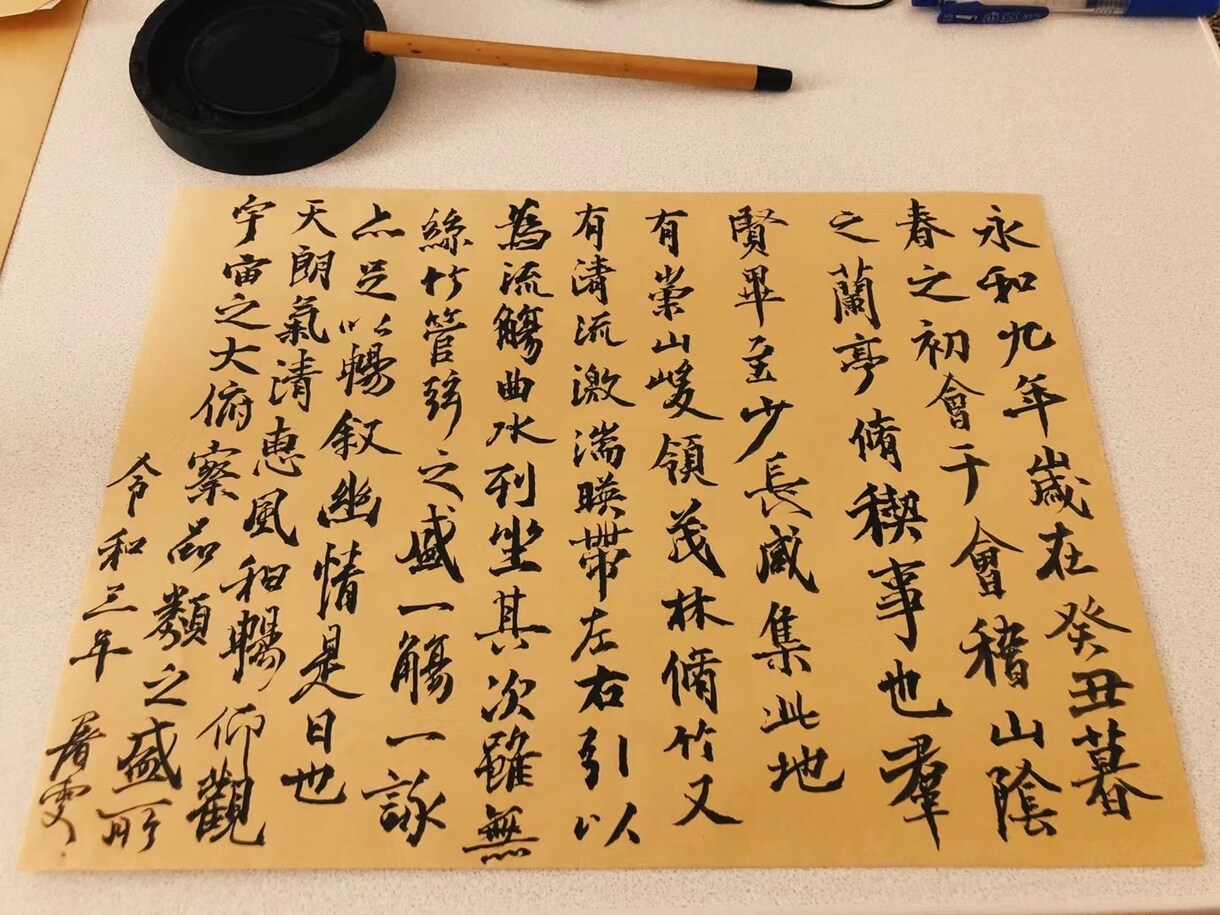 永和九年歲在癸丑暮
春之初會于會稽山陰
之蘭亭脩禊事也羣
賢畢至少長咸集此地
有崇山峻領茂林脩竹又
有清流激湍暎帶左右引以
為流觴曲水列坐其次雖無
絲竹管弦之盛一觴一詠
亦足以暢叙幽情是日也
天朗氣清惠風和暢仰觀
宇宙之大俯察品類之盛所
令和三年